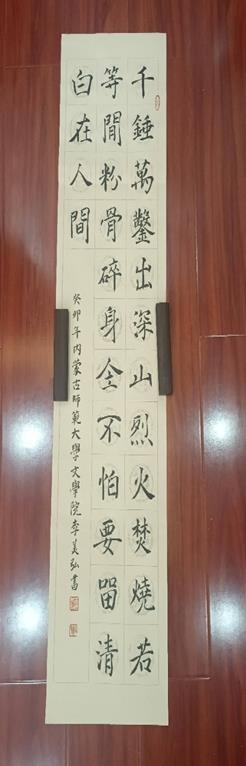 千錘萬鑿出深山烈火焚燒若
等閒粉骨碎身全不怕要留清
白在人間
癸卯年内蒙古师範大學文學院李美弘書